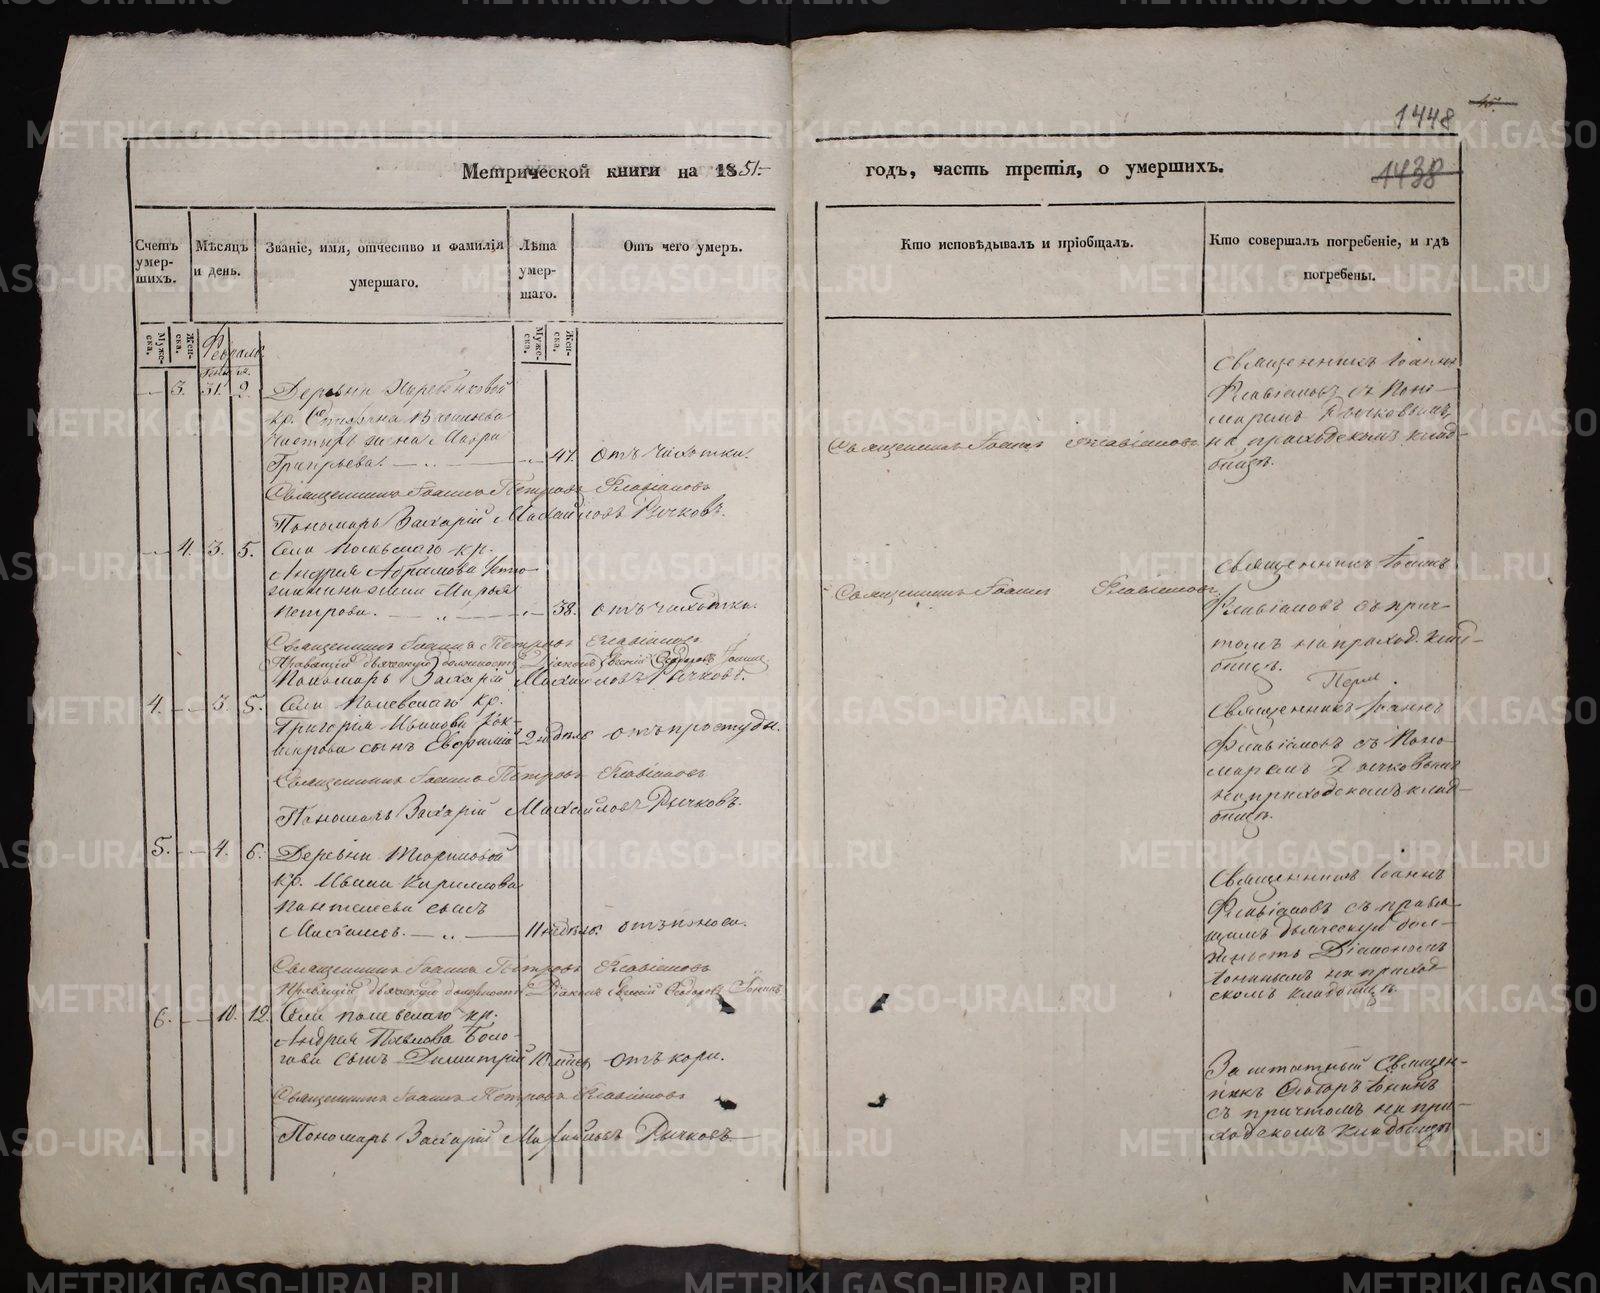 1448
1438
Метрической книги на 1851-
годъ, часть третія, о умершихъ.
Счетъ умер-
шихъ.
Мѣсяцъ
и день.
Званіе, имя, отчество и фамилія
умершаго.
Лѣта
умер-
шаго.
Отъ чего умеръ.
Кто исповѣдывалъ и пріобщалъ.
Кто совершалъ погребеніе, и гдѣ
погребены.
Муже-
ска.
Жен-
ска.
Муже-
ска.
Жен-
ска.
Февраль.
3. 31. 2. Деревни
кр. Стефана
жена Мавра
Григорьева. 47. отъ чахотки.
Священникъ Іоаннъ Флавіановъ
Священникъ Іоаннъ
Флавіановъ съ Поно-
маремъ Рычковымъ,
на приходскомъ клад-
бищѣ.
Священникъ Іоаннъ Петровъ Флавіановъ
Пономарь Захарій Михайловъ Рычковъ.
4. 3. 5. Села Полевскаго кр.
Андрея Абрамова
жена Марья
Петрова. 38. отъ чахотки.
Священникъ Іоаннъ Флавіановъ
Священникъ Іоаннъ
Флавіановъ съ прич-
томъ на приход. клад-
бищѣ.
Священникъ Іоаннъ Петровъ Флавіановъ
Правящій дьяческую должность Діаконъ Ѳеодоровъ Іонинъ
Пономарь Захарій Михайловъ Рычковъ.
4. 3. 5. Села Полевскаго кр.
Григорія Иванова
сынъ Евфимій 2 недѣль отъ простуды.
Священникъ Іоаннъ
Флавіановъ съ Поно-
маремъ Рычковымъ
на приходскомъ клад-
бищѣ.
Священникъ Іоаннъ Петровъ Флавіановъ
Пономарь Захарій Михайловъ Рычковъ.
5. 4. 6. Деревни
кр. Ивана Кириллова
Пантелеева сынъ
11 недѣль. отъ поноса.
Священникъ Іоаннъ
Флавіановъ съ правя-
щимъ дьяческую дол-
жность Діакономъ
Іонинымъ на приход-
скомъ кладбищѣ.
Священникъ Іоаннъ Петровъ Флавіановъ
Правящій дьяческую должность Діаконъ Ѳеодоровъ Іонинъ
6. 10. 12. Села Полевскаго кр.
Андрея Павлова
сынъ Димитрій отъ кори.
Заштатный Священ-
никъ Ѳеодоръ Іонинъ
съ причтомъ на при-
ходскомъ кладбищѣ
Священникъ Іоаннъ Петровъ Флавіановъ
Пономарь Захарій Михайловъ Рычковъ
METRIKI.GASO-URAL.RU